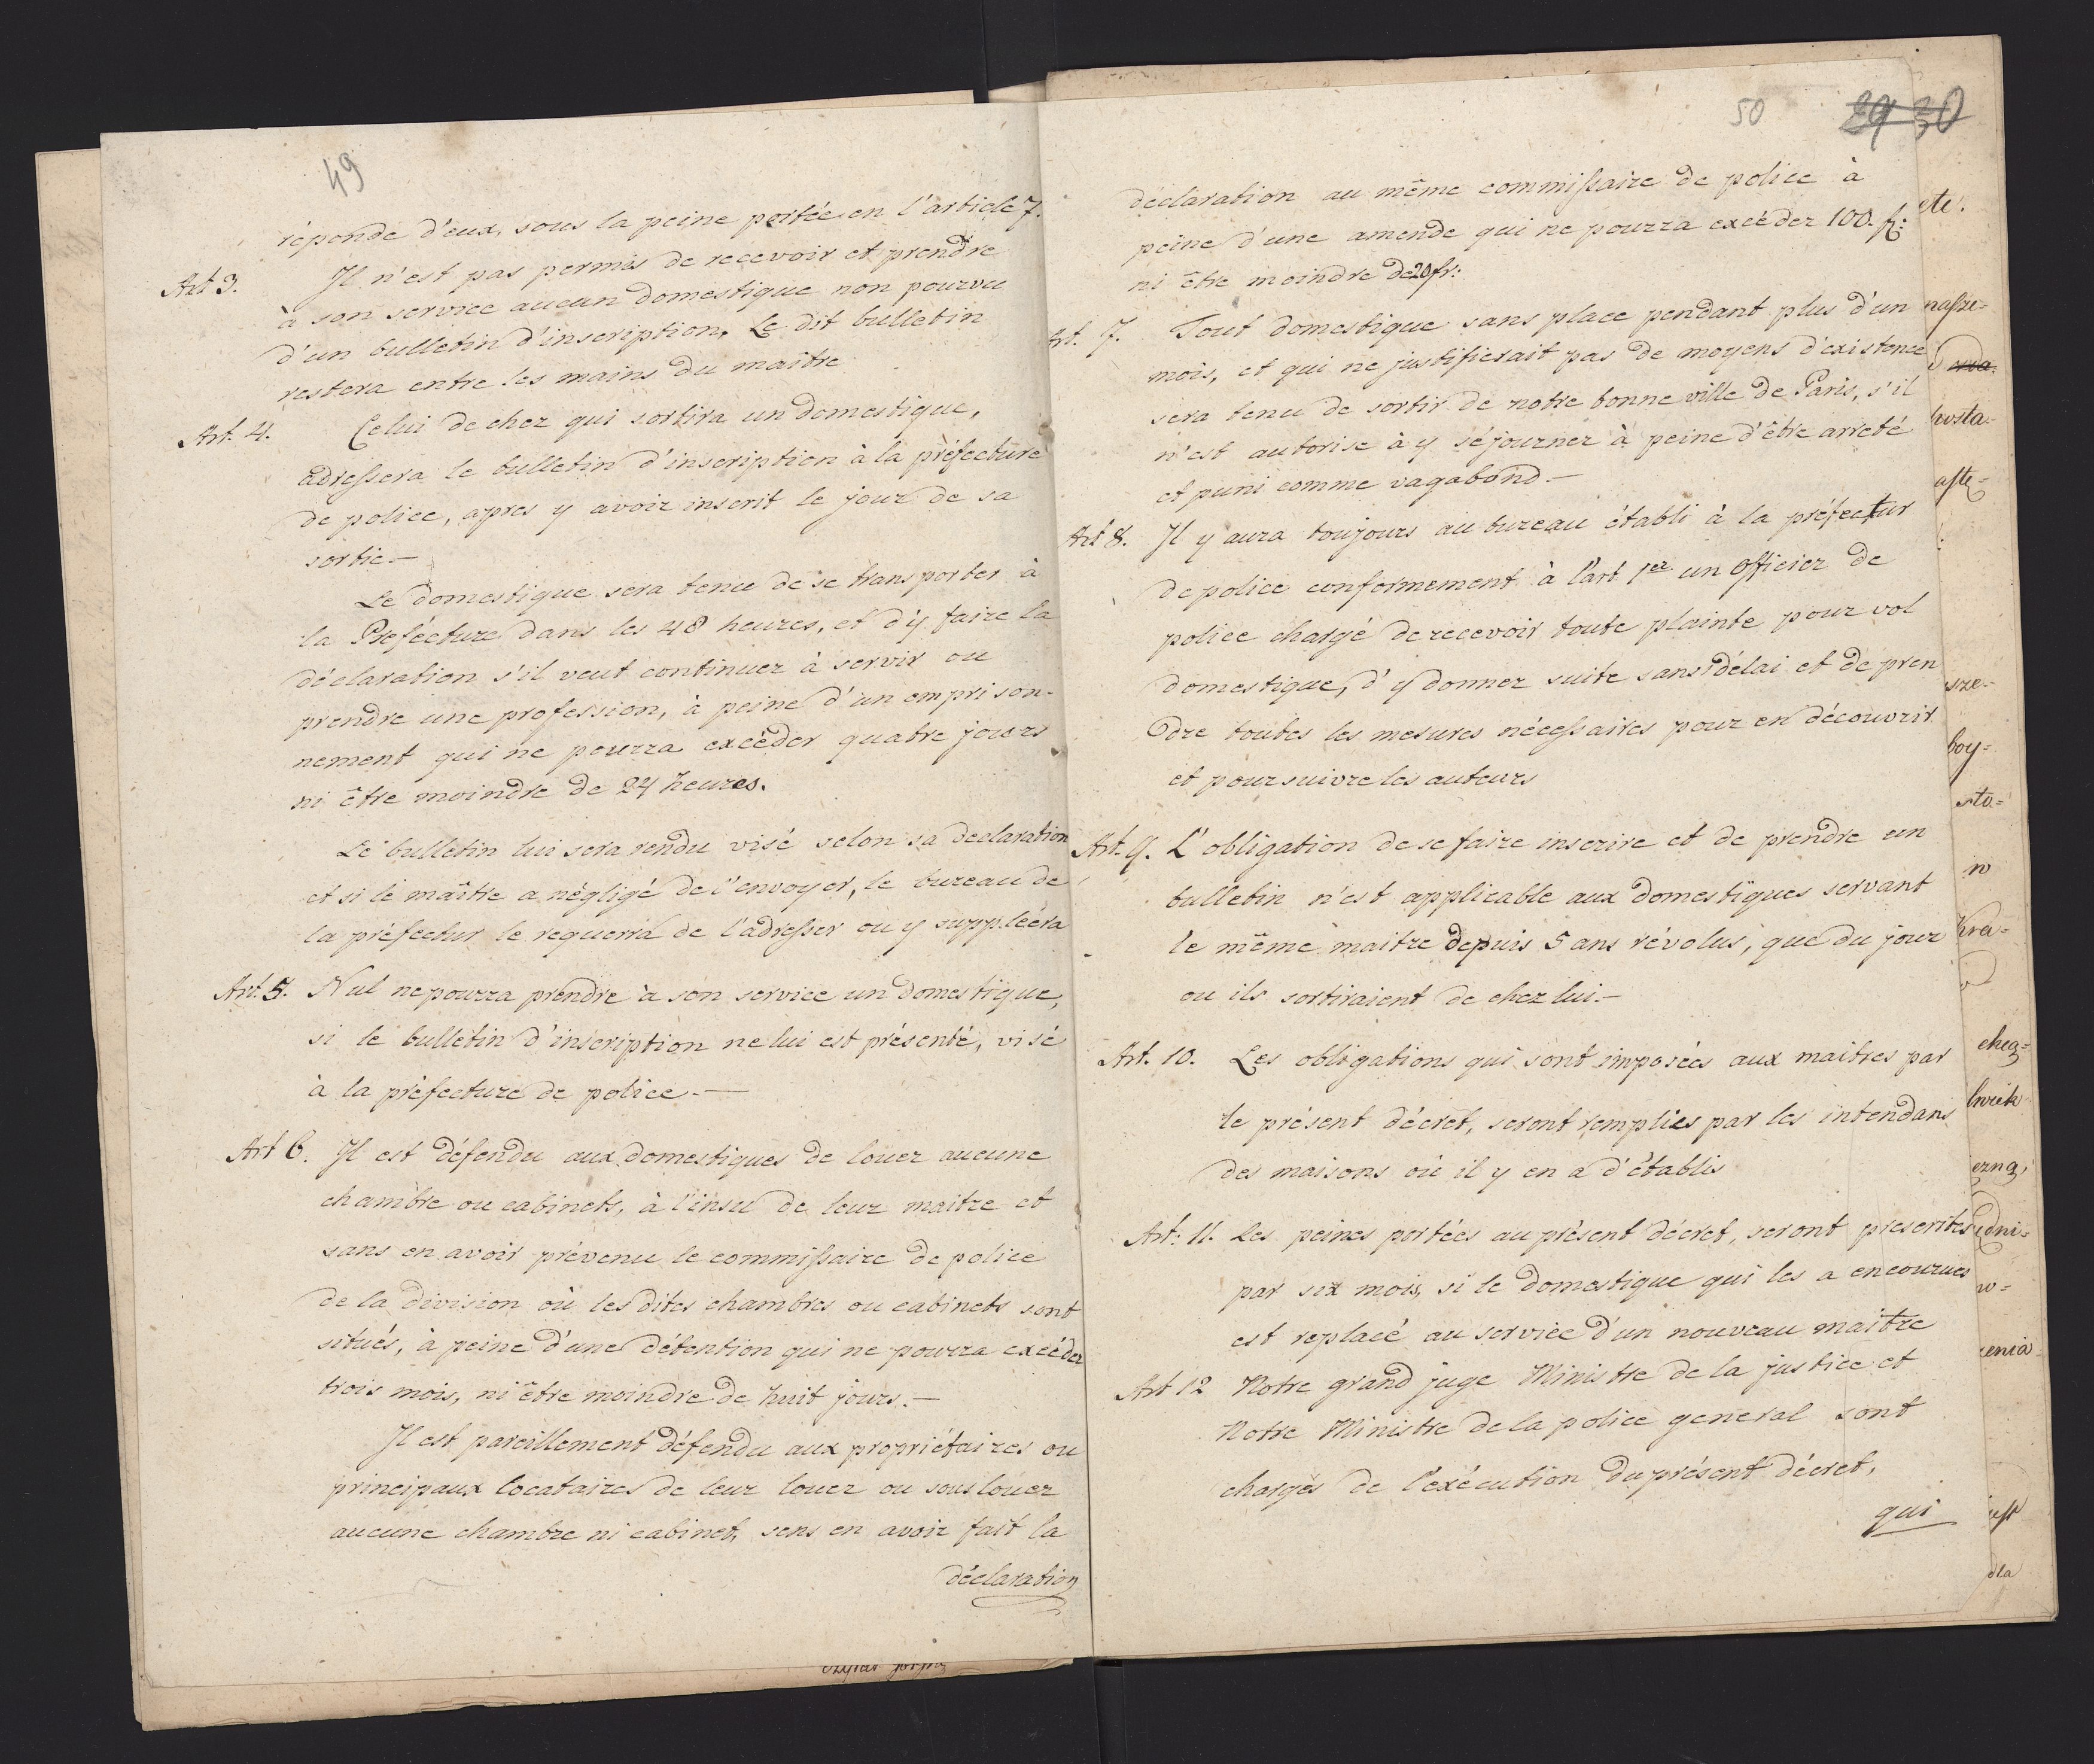 49
réponde d'eux, sous la peine portée en l'article 7.
Art 3. Il n'est pas permis de recevoir et prendre
à son service aucun domestique non pourvu
d'un bulletin d'inscription. Le dit bulletin
restera entre les mains du maitre
Art. 4. Celui de chez qui sortira un domestique,
adressera le bulletin d'inscription à la préfecture
de police, apres y avoir inscrit le jour de sa
sortie.—
Le domestique sera tenu de se transporter à
la Préfecture dans les 48 heures, et d'y faire la
déclaration s'il veut continuer à servir ou
prendre une profession, à peine d'un emprison-
nement qui ne pourra excéder quatre jours
ni être moindre de 24 heures.
Le bulletin lui sera rendu visé selon sa declaration
et si le maître a négligé de l'envoyer, le bureau de
la préfectur le requerra de l'adresser ou y suppléera
Art. 5. Nul ne pourra prendre à son service un domestique,
si le bulletin d'inscription ne lui est présenté, visé
à la préfecture de police.—
Art 6. Il est défendu aux domestiques de louer aucune
chambre ou cabinets, à l'insu de leur maitre et
sans en avoir prévenu le commissaire de police
de la division où les dites chambres ou cabinets sont
situés, à peine d'une détention qui ne pourra excéder
trois mois, ni être moindre de huit jours.—
Il est pareillement défendu aux propriétaires ou
principaux locataires de leur louer ou sous louer
aucune chambre ni cabinet, sens en avoir fait la
déclaration
50 29 30
déclaration au même commissaire de police à
peine d'une amende qui ne pourra excéder 100. fr:
ni être moindre de 20 fr:
Art. 7. Tout domestique sans place pendant plus d'un
mois, et qui ne justifierait pas de moyens d'existence
sera tenu de sortir de notre bonne ville de Paris, s'il
n'est autorise à y séjourner à peine d'être arreté
et puni comme vagabond.—
Art 8. Il y aura toujours au bureau établi à la préfectur
de police conformement à l'art 1er un Officier de
police chargé de recevoir toute plainte pour vol
domestique, d'y donner suite sans délai et de pren
dre toutes les mesures nécessaires pour en découvrir
et poursuivre les auteurs
Art. 9. L'obligation de se faire inscrire et de prendre un
bulletin n'est applicable aux domestiques servant
le même maitre depuis 5 ans révolus, que du jour
ou ils sortiraient de chez lui.—
Art. 10. Les obligations qui sont imposées aux maitres par
le présent décret, seront remplies par les intendans
des maisons où il y en a d'établis
Art: 11. Les peines portées au présent décret, seront prescrites
par six mois, si le domestique qui les a encourues
est replacé au service d'un nouveau maitre
Art 12 Notre grand juge Ministre de la justice et
Notre Ministre de la police general sont
chargés de l'exécution du présent décret,
qui